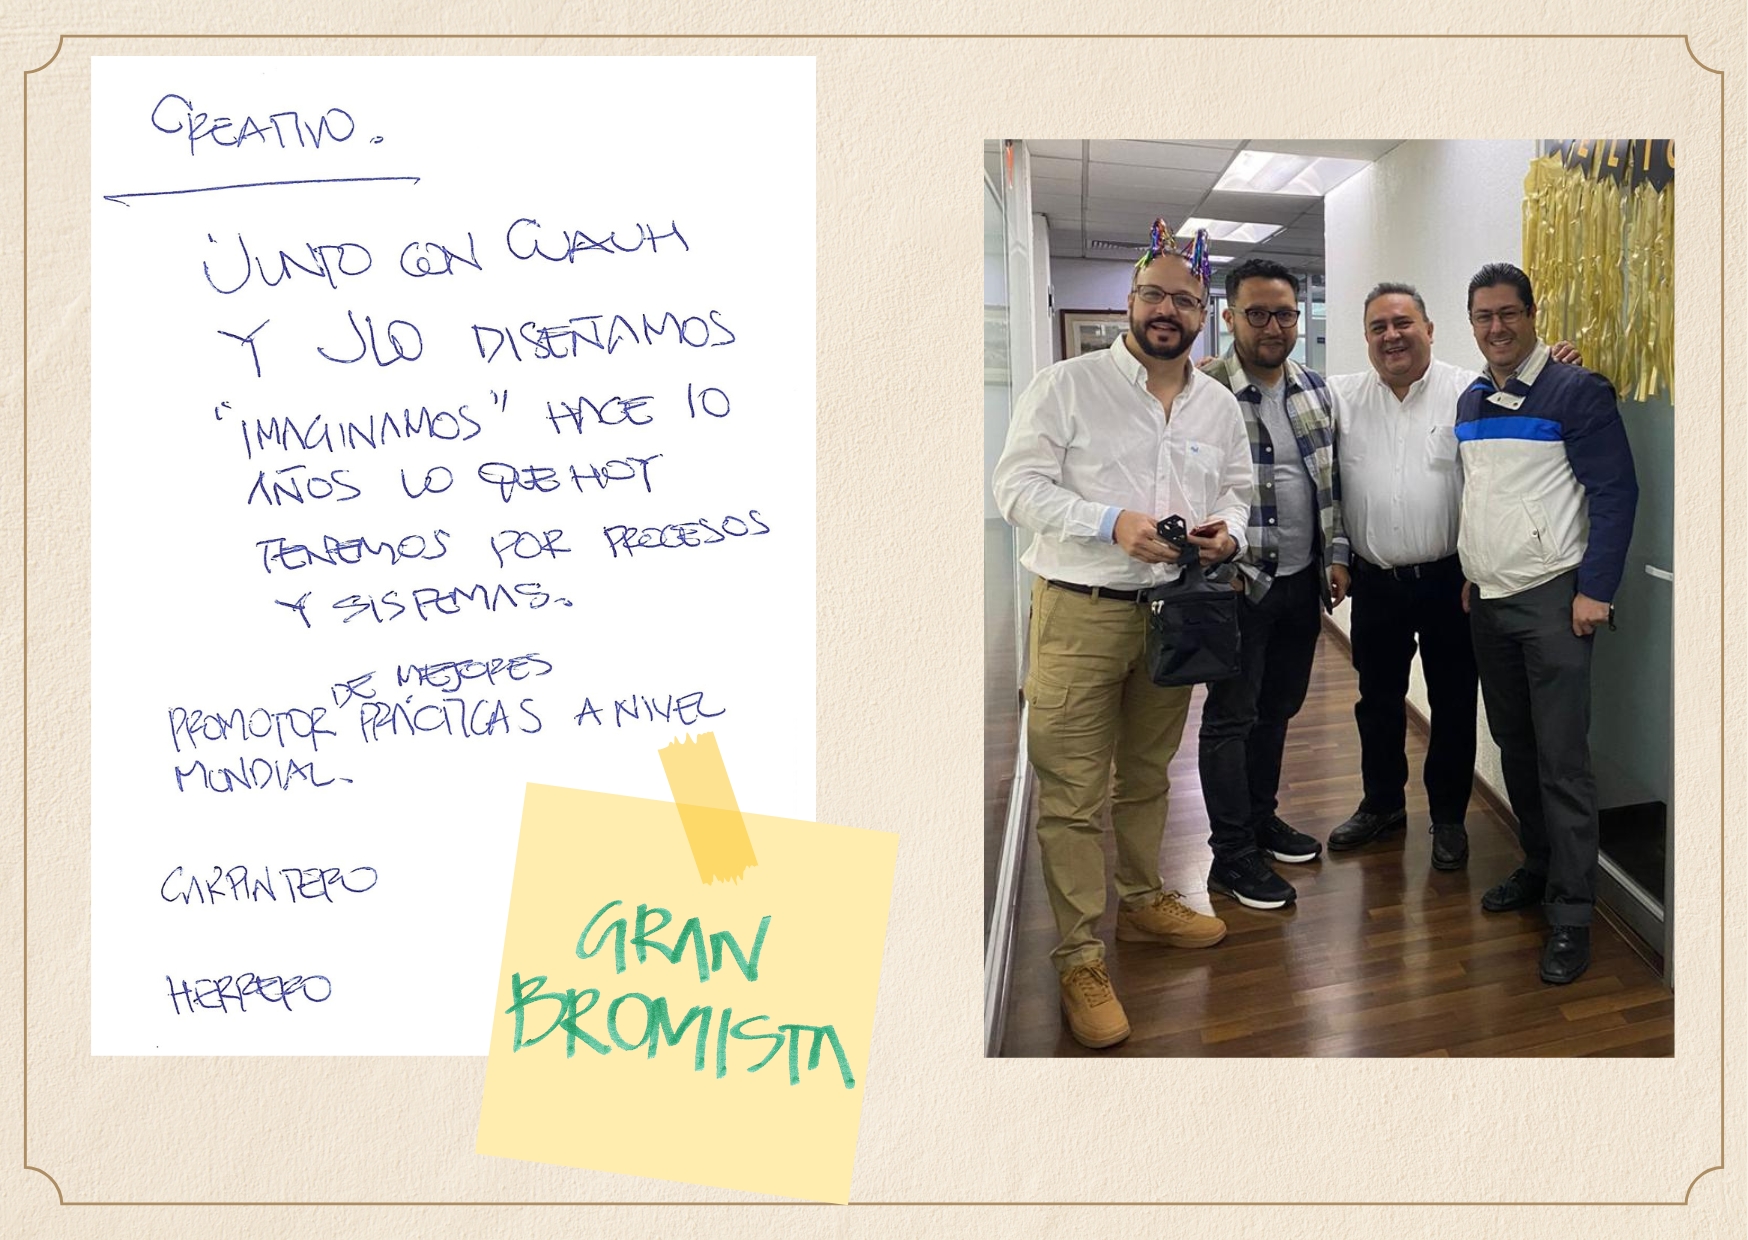 CREATIVO.
JUNTO CON CUAUH
Y JLO DISEÑAMOS
"IMAGINAMOS" HACE 10
AÑOS LO QUE HOY
TENEMOS POR PROCESOS
Y SISTEMAS.
DE MEJORES
PROMOTOR PRÁCTICAS A NIVEL
MUNDIAL.
CARPINTERO
HERRERO
GRAN
BROMISTA